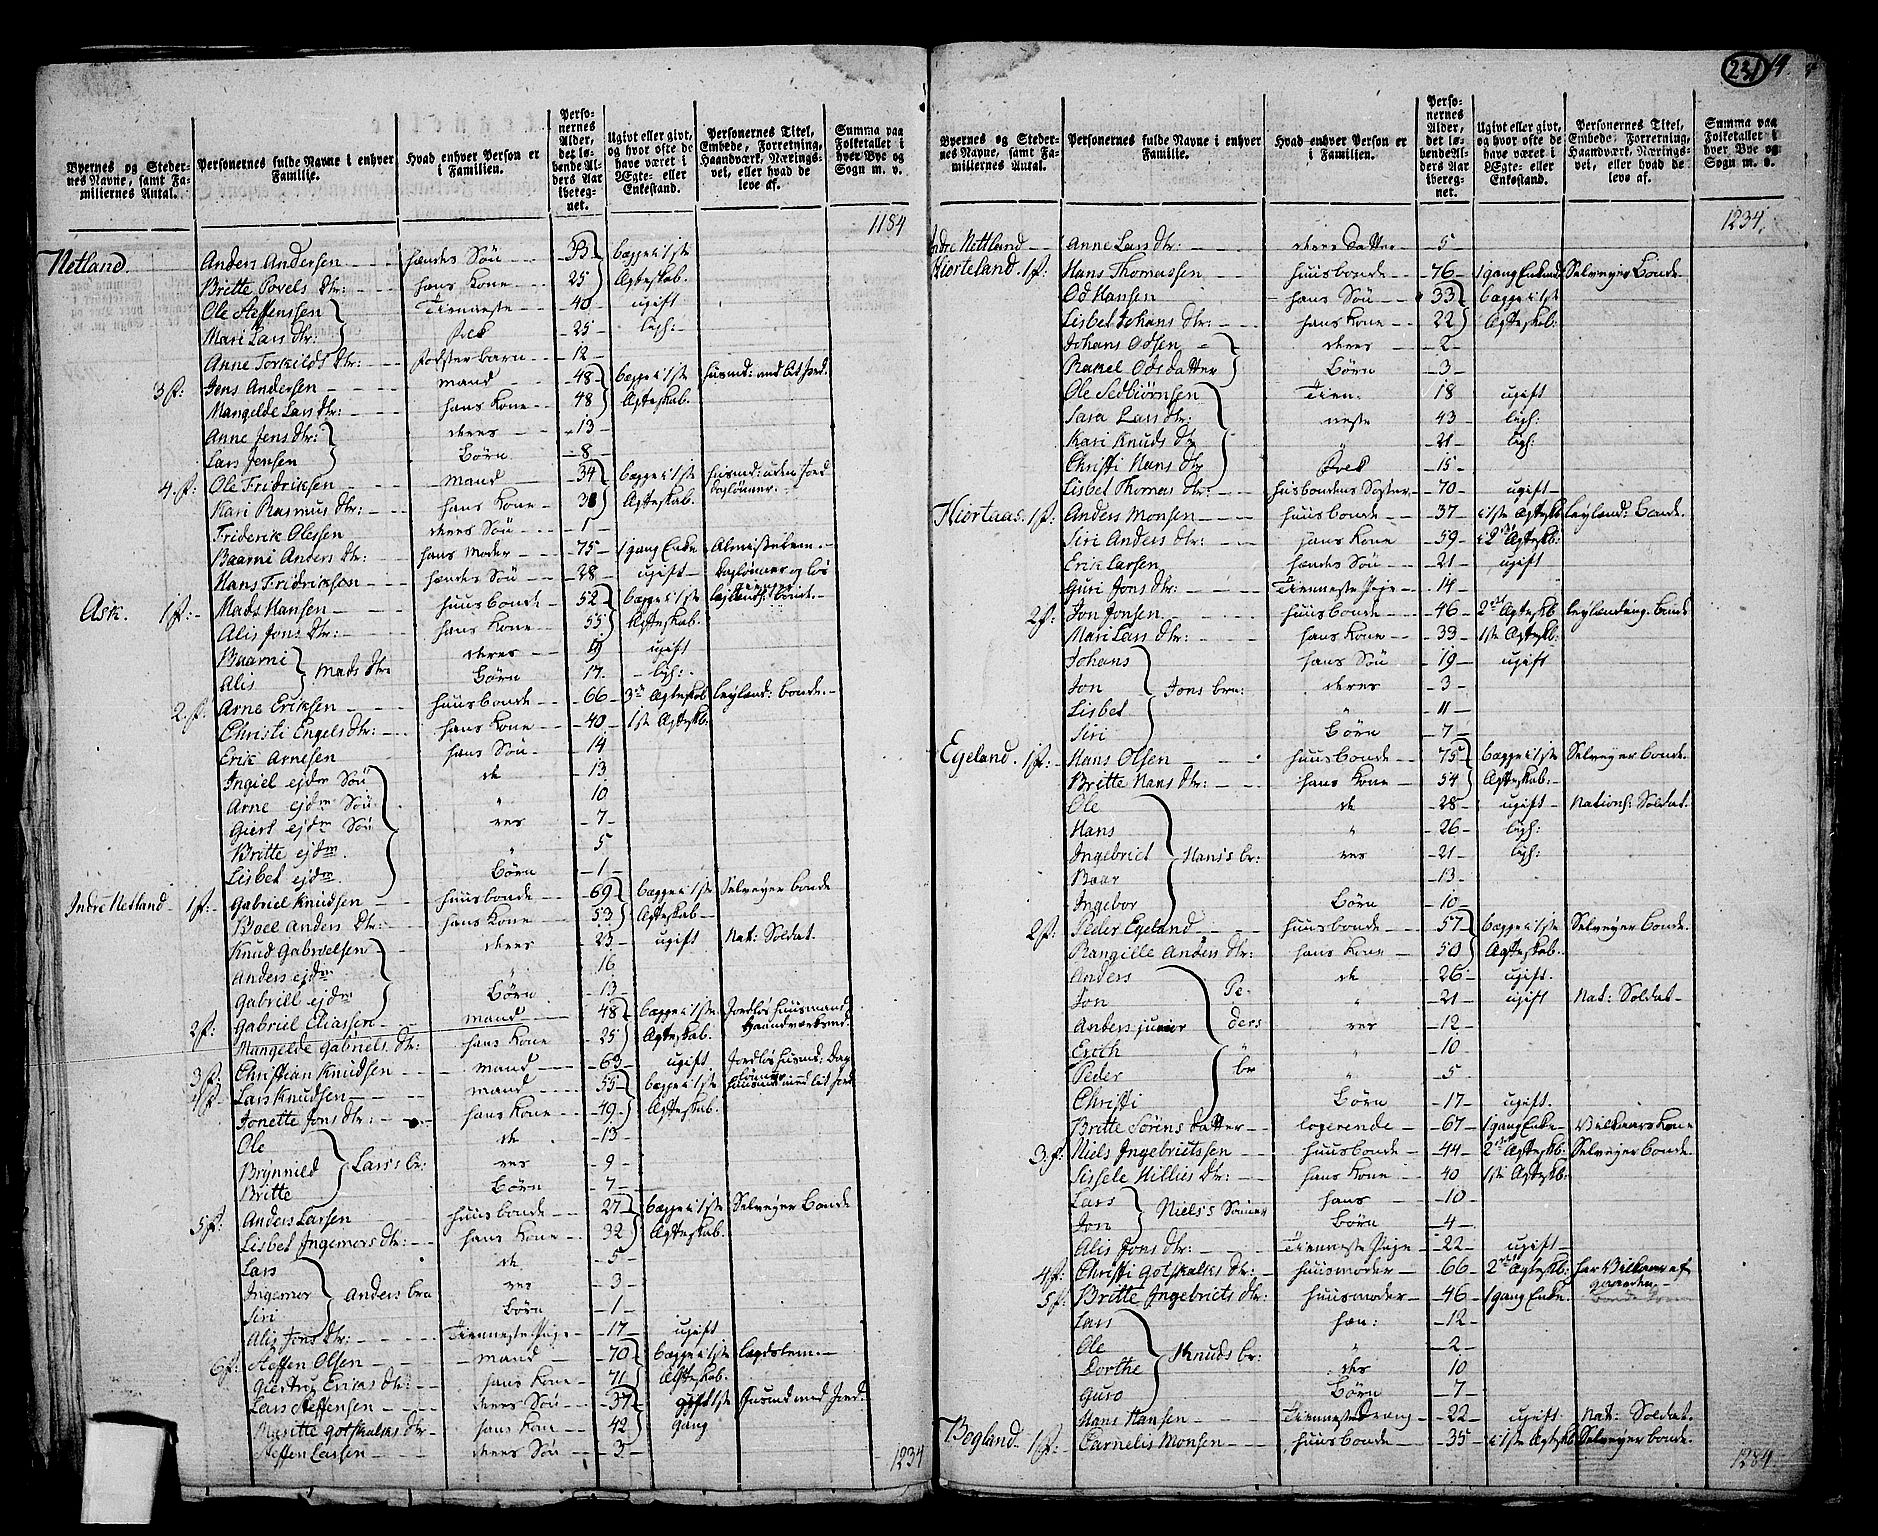 231 14
Byernes og Steder-
nes Navne, samt Fa-
miliernes Antal.
Personernes fulde Navne i enhver
Familie.
Hvad enhver Person er
i Familien.
Perso-
nernes
Alder,
det lø-
bende Al-
ders Aar
iberég-
net.
Ugivt eller givt,
og hvor ofte de
have været i
Ægte- eller
Enkestand.
Personernes Titel,
Embede, Forretning,
Haandværk, Nærings-
vei, eller hvad de
leve af.
Summa paa
Folketallet i
hver Bye og
Sogn m. v.
1184
Netland. Anders Andersen hendes Søn 33 begge i 1ste
Britte Povels Dtr: hans Kone 25 Ægteskab.
Ole Steffenssen Tienneste 40 ugift
Mari Lars Dtr: Folk 25 ligh:
Anne Torkilds Dtr: Fostterbarn 12
3 f: Jens Andersen mand 48 begge i 1ste huusmd: med lidt Jord.
Mangelde Lars Dtr: hans Kone 48 Ægteskab.
Anne Jens Dtr: deres 13
Lars Jensen Børn 8
4. f: Ole Fridriksen mand 34 begge i 1ste huusmd: uden Jord
Kari Rasmus Dtr: hans Kone 30 Ægteskab. Daglønner.
Friderik Olessen deres Søn 1
Baarni Anders Dtr: hans Moder 75 1 gang Enke Almisselem.
Hans Fridriksen hendes Søn 28 ugift Daglønner og løs
Ask. 1 f: Mads Hansen huusbonde 52 begge i 1ste leylend: bonde.
Alis Jons Dtr: hans Kone 55 Ægteskab.
Baarni deres 19 ugift
Alis Mads Dtr Børn 17. ligh:
2. f: Arne Eriksen huusbonde 66 3die Ægteskab leylend: bonde.
Christi Engels Dtr: hans Kone 40 1ste Ægteskb:
Erik Arnesen hans Søn 14
Ingiel ejdm Søn de 13
Arne ejdm Søn " 10
Giert ejdm Søn res 7
Britte ejdm. " 5
Lisbet ejdm. Børn 1
Indre Netland 1 f: Gabriel Knudsen huusbonde 69 begge i 1ste Selveyer bonde
Boel Anders Dtr: hans Kone 53 Ægteskab
Knud Gabrielsen deres 23 ugift Nat: Soldat.
Anders ejdm 16
Gabriel ejdm Børn 13
2 f: Gabriel Eliassen mand 48 begge i 1ste Jordløs huusmand
Mangelde Gabriels Dtr: hans Kone 25 Ægteskab. Haandverksmd.
3 f: Christian Knudsen mand 63 ugift Jordløs huusmd: Dag
4 f: Lars Knudsen mand 55 begge i 1ste lønner huusmd med lit Jord
Jonette Jons Dtr: hans Kone 49 Ægteskab.
Ole de 13
Brynnild Lars's br: res 9
Britte Børn 7
5 f: Anders Larsen huusbonde 27 begge i 1ste Selveyer bonde
Lisbet Ingemors Dtr: hans Kone 32 Ægteskab.
Lars de 5
Ingemor Anders brn res 3
Siri Børn 1
Alis Jons Dtr: Tienneste Pige 17 ugift
6 f: Steffen Olsen mand 70 begge i 1ste Lægdslem.
Giertru Eriks Dtr: hans Kone 71 Ægteskab.
Lars Steffensen deres Søn 37 gift 1ste Huusmd med Jord.
Maritte Gotskalks Dtr hans Kone 42 gang
Steffen Larsen deres Søn 3
1234
Byernes og Steder-
nes Navne, samt Fa-
miliernes Antal.
Personernes fulde Navne i enhver
Familie.
Hvad enhver Person er
i Familien.
Perso-
nernes
Alder,
det lø-
bende Al-
ders Aar
iberég-
net.
Ugivt eller givt,
og hvor ofte de
have været i
Ægte- eller
Enkestand.
Personernes Titel,
Embede, Forretning,
Haandværk, Nærings-
vei, eller hvad de
leve af.
Summa paa
Folketallet i
hver Bye og
Sogn m. v.
1234.
Indre Nettland Anne Lars Dtr: deres Datter 5
Hiorteland. 1 f: Hans Thomassen huusbonde 76 1 gang Enkemd Selveyer bonde
Od Hansen hans Søn 33 begge i 1ste
Lisbet Johans Dtr: hans Kone 22 Ægteskab:
Johans Odsen deres 2
Rakel Ods datter Børn 3
Ole Sedbiørnsen Tien. 18 ugift
Sara Lars Dtr: neste 43 ligh:
Kari Knuds Dtr " 21 ligh:
Christi Hans Dtr Folk 15
Lisbet Thomas Dtr: husbondens Søster 70 ugift
Hiortaas. 1 f: Anders Monsen huusbonde 37 i 1ste Ægteskb leylend: bonde.
Siri Anders Dtr: hans Kone 59 i 2det Ægteskb:
Erik Larsen hendes Søn 21 ugift
Guri Jons Dtr: Tienneste Pige 14
2 f: Jon Jonsen huusbonde 46 2det Ægteskb leylending. bonde
Mari Lars Dtr: hans Kone 33 1ste Ægteskb:
Johans hans Søn 19 ugift
Jon Jons brn: deres 3
Lisbet " 11
Siri Børn 7
Egeland. 1 f: Hans Olsen huusbonde 75 begge i 1ste Selveyer bonde.
Britte Hans Dtr: hans Kone 54 Ægteskab:
Ole de 28 ugift National: Soldat.
Hans " 26 ligh:
Ingebriet Hans's br: res 21 ligh:
Baar 13
Ingebor Børn 10
2 f: Peder Egeland huusbonde 57 begge i 1ste Selveyer bonde.
Rangille Anders Dtr: hans Kone 50 Ægteskab.
Anders de 26 ugift.
Jon Pe- " 21 ugift Nat: Soldat
Anders junior ders res 12
Erich " " 10
Peder br " 5
Christi Børn 17 ugift.
Britte Sørens datter logerende 67 1 gang Enke Vilkaars Kone
3. f. Niels Ingebrietssen huusbonde 44 2det Ægteskb. Selveyer bonde
Sissele Willies Dtr: hans Kone 40 1ste Ægteskb.
Lars hans 10
Jon Niels's Sønner Børn 4
Alis Jons Dtr: Tienneste Pige 22 ugift
4 f: Christi Gotskalks Dtr: huusmoder 66 2det Ægteskb: har Vilkaar af
5 f: Britte Ingebriets Dtr: huusmoder 46 1 gang Enke. gaarden
Lars hen: 12
Ole " 2
Dorthe Knuds br: des 10
Guro Børn 7
Hans Hansen Tienneste Dreng 22 ugift Nat: Soldat.
Begland. 1 f: Carnelis Monsen huusbonde 35 i 1ste Ægteskb Selveyer bonde.
1284